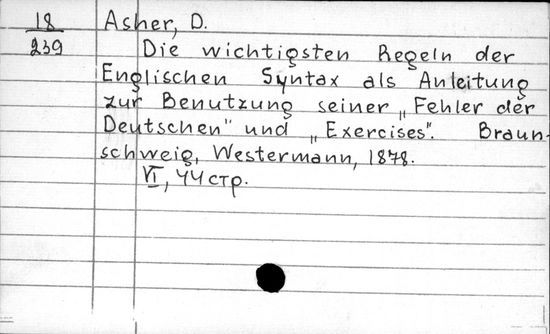 18 Asher, D.
239 Die wichtigsten Regeln der
Englischen Syntax als Anleitung
zur Benutzung seiner „Fehler der
Deutschen" und „Exercises". Braun-
schweig, Westermann, 1878.
VI, 44 стр.